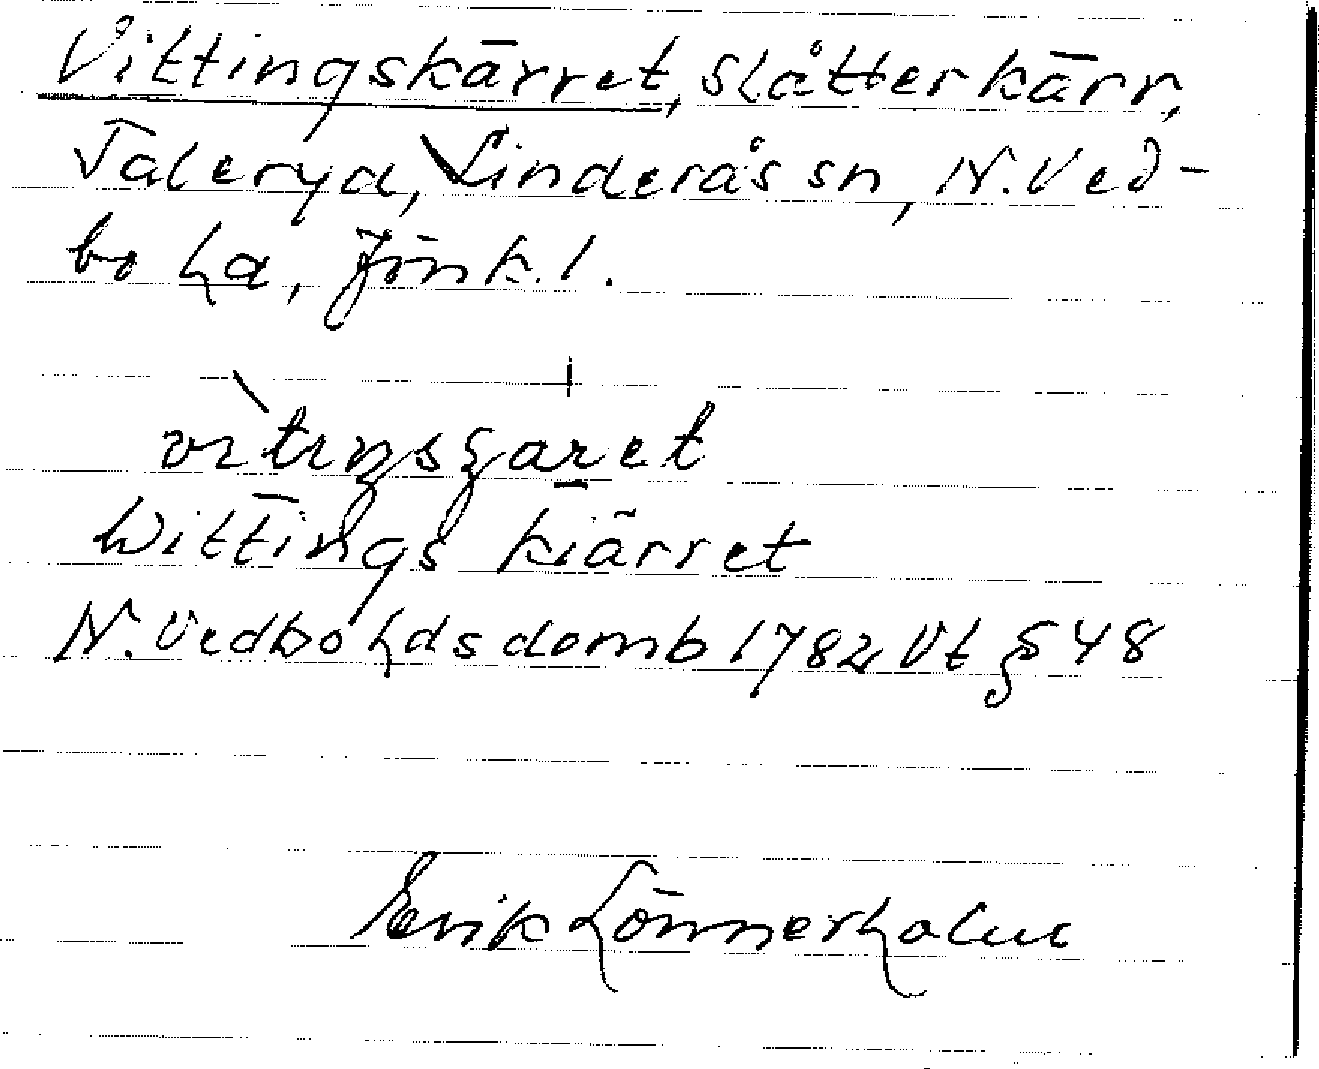 Vittingskärret, slåtterkärr,
Taleryd, Linderås sn, N. Ved-
bo hd, Jönk. l.
Wittings kiärret
N. Vedbo hds domb 1782 Vt § 48
Erik Lönnerholm